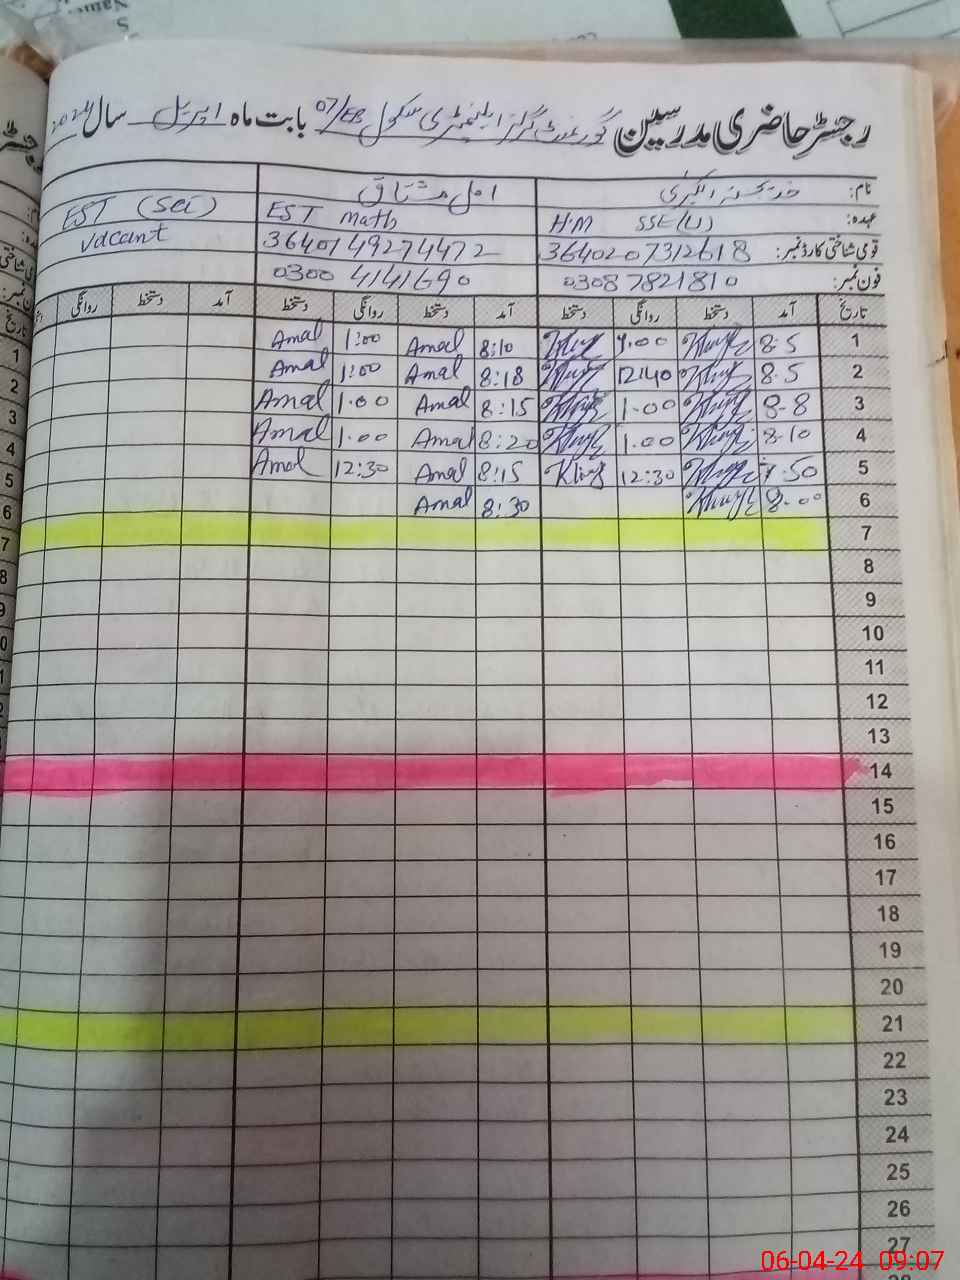 رجسٹر حاضری مدرسین گورنمنٹ گرلز ایلیمنٹری سکول 07/EB بابت ماہ اپریل سال 2024
نام: خدیجہ الکبریٰ امل مشتاق
عہدہ: H.M SSE(U) EST Math EST (Sci)
قومی شناختی کارڈ نمبر: 3640207312618 3640149274472 Vacant
فون نمبر: 03087821810 0300 4141690
تاریخ آمد دستخط روانگی دستخط آمد دستخط روانگی دستخط آمد دستخط روانگی
1 8:5 1:00 8:10 Amal 1:00 Amal
2 8.5 12:40 8:18 Amal 1:00 Amal
3 8-8 1-00 8:15 Amal 1.00 Amal
4 8-10 1.00 8:20 Amal 1.00 Amal
5 7.50 12:30 8:15 Amal 12:30 Amal
6 8.00 8:30 Amal
7
8
9
10
11
12
13
14
15
16
17
18
19
20
21
22
23
24
25
26
27
06-04-24 09:07